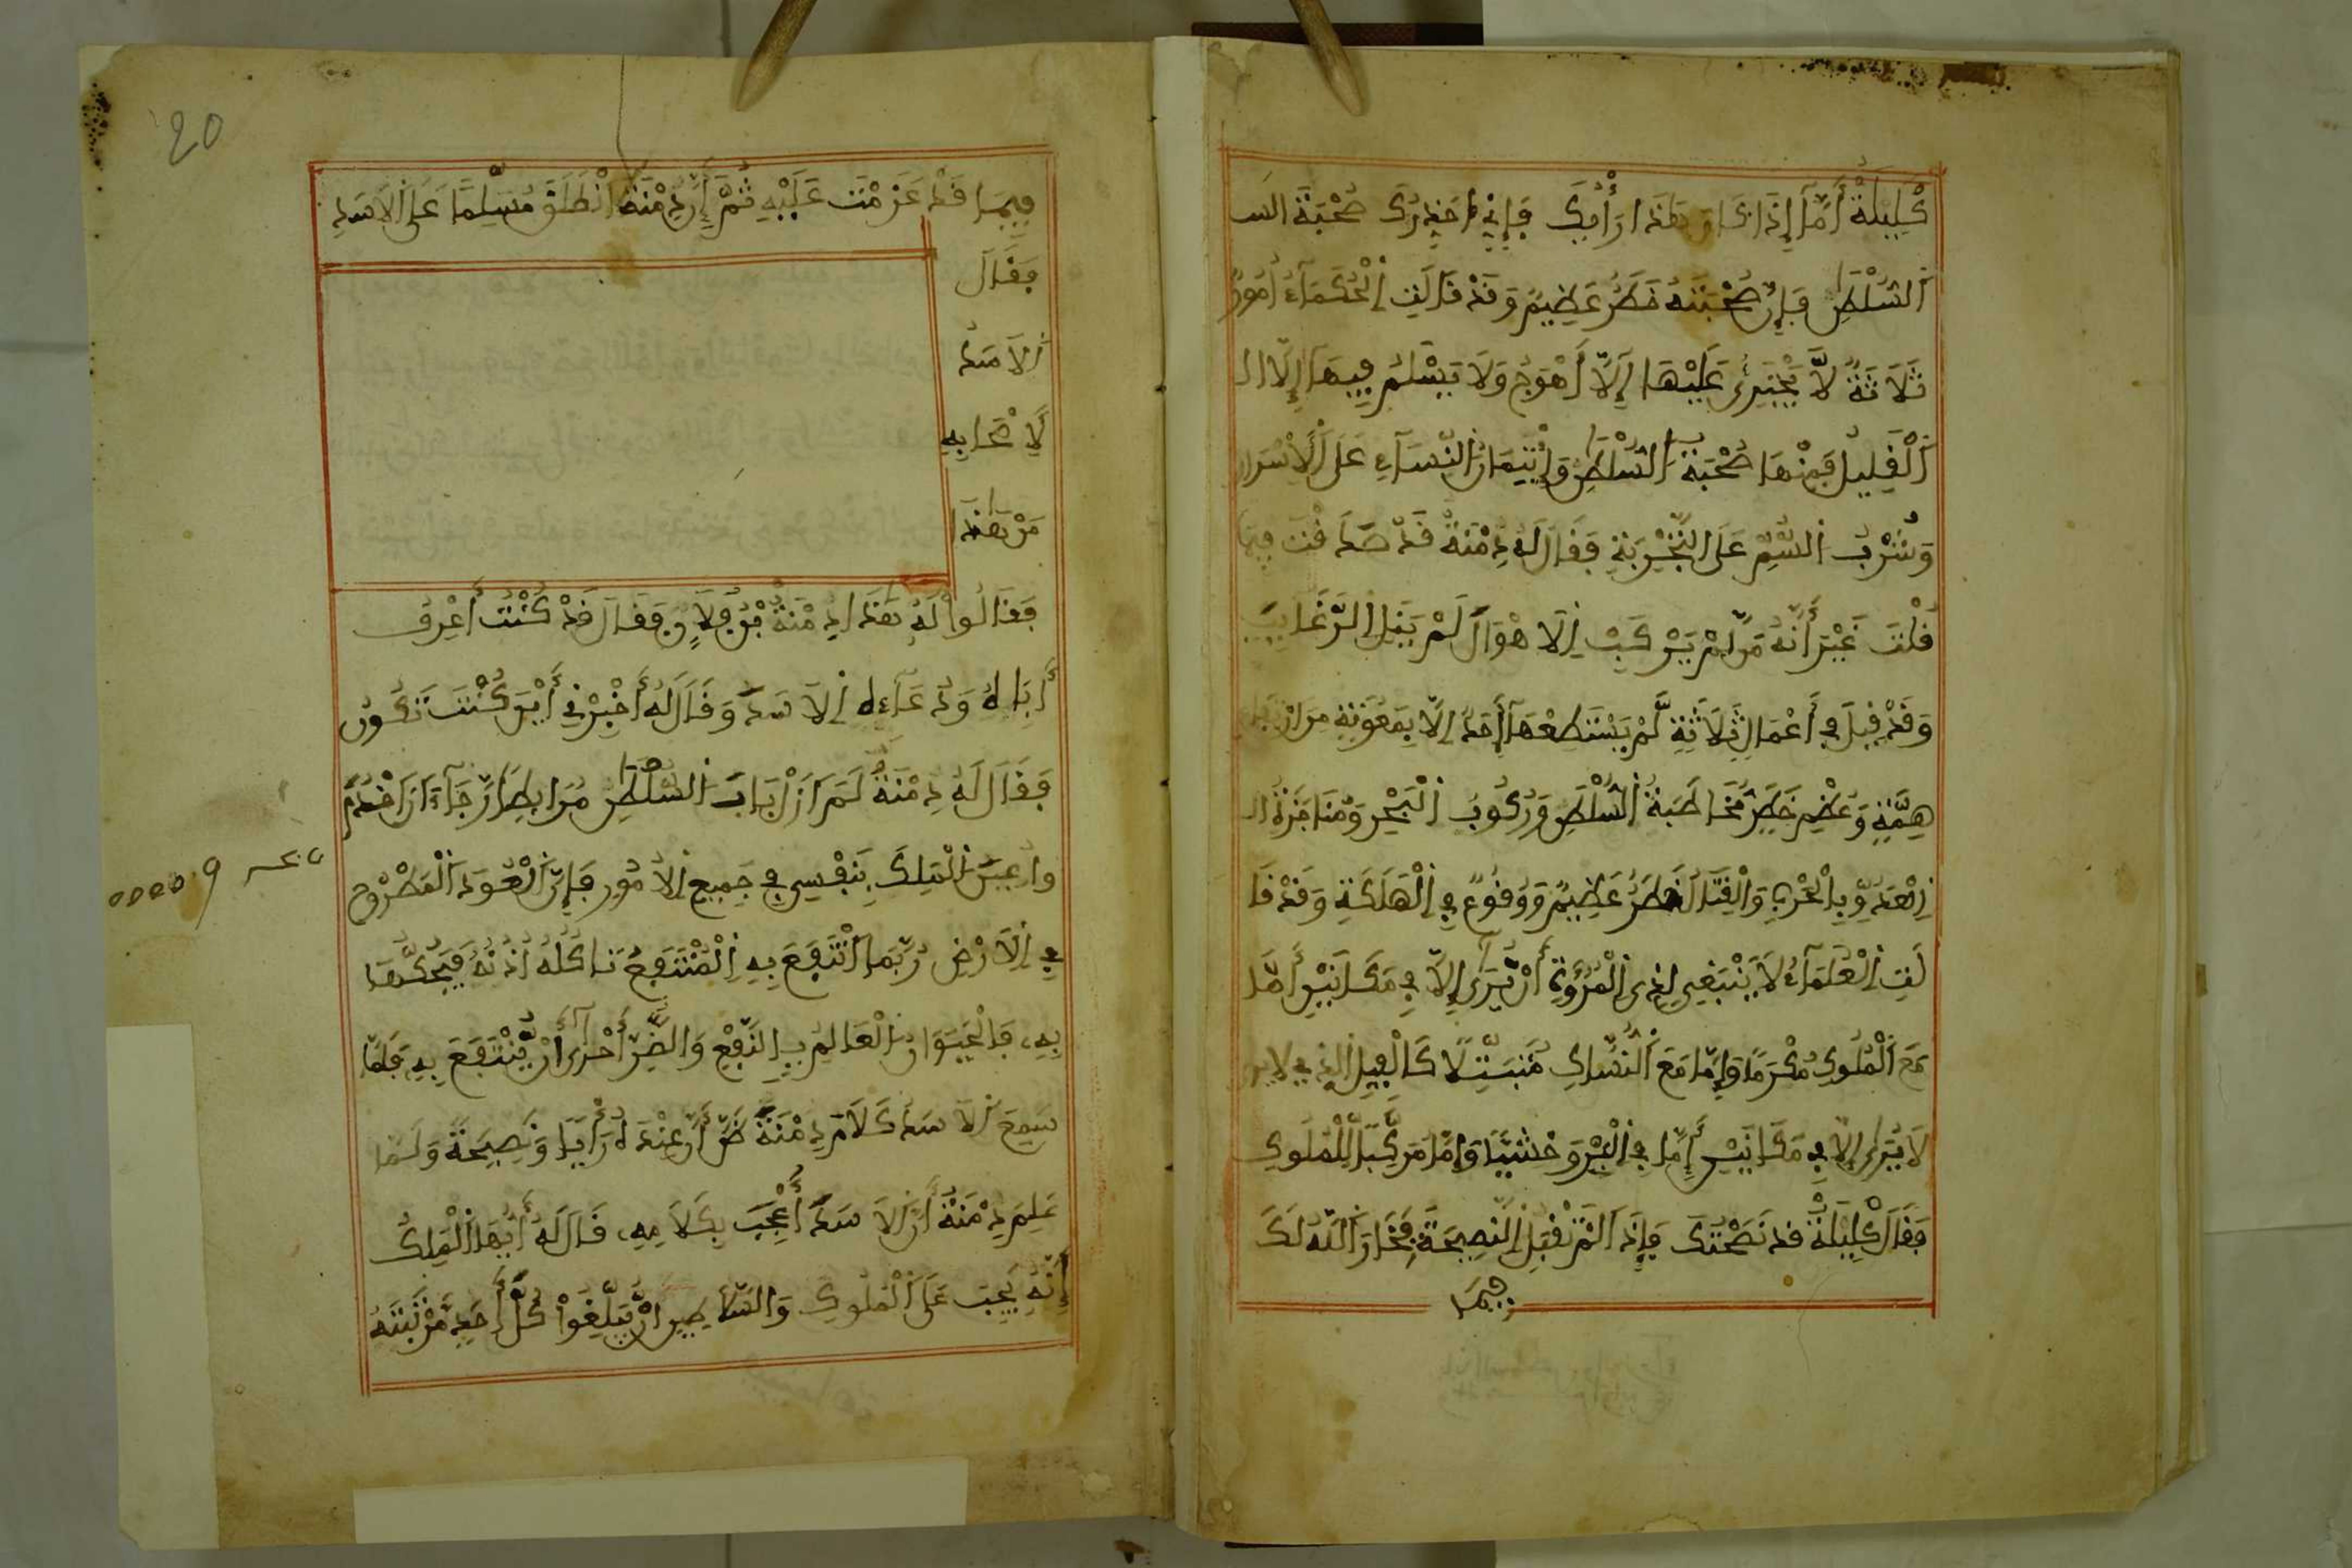 كَلِيلَةُ أَمَّا إِذَا كَانَ هَذَا رَأْيُكَ فَإِنِّي أُحَذِّرُكَ صُحْبَةَ السـ
اَلسُّلْطَٰنِ فَإِنَّ صُحْبَتَهُ خَطَرٌ عَظِيمٌ وَقَدْ قَالَتِ اِلْحُكَمَآءُ أُمُورٌ
ثَلَاثَةٌ لَّا يَجْتَرِئُ عَلَيْهَا إِلَّا أَهْوَجُ وَلَا يَسْلَمُ فِيهَا إِلَّا الـ
اَلْقَلِيلُ فَمِنْهَا صُحْبَةُ اَلسُّلْطَٰنِ وَائْتِمَانُ النِّسَآءِ عَلَى اَلْأَسْرَارِ
وَشُرْبُ اُلسُّمِّ عَلَى التَّجْرِبَةِ فَقَالَ لَهُ دِمْنَةُ قَدْ صَدَقْتَ فِيمَا
قُلْتَ غَيْرَ أَنَّهُ مَن لَّمْ يَرْكَبْ اِلَاهْوَالَ لَمْ يَنَلِ اِلرَّغَايِبَ
وَقَدْ قِيلَ فِي أَعْمَالٍ ثَلَاثَةٍ لَّمْ يَسْتَطِعْهَا أَحَدٌ اِلَّا بِمَعُونَةٍ مِنَ ارْتِفَاعِ
هِمَّةٍ وَعُظْمِ خَطَرٍ مُخَاطَبَةُ اُلسُّلْطَٰنِ وَرُكُوبُ اُلْبَحْرِ وَمُنَاجَزَةُ الـ
اِلْعَدُوِّ بِالْحَرْبِ وَالْقِتَالُ خَطَرٌ عَظِيمٌ وَوُقُوعٌ فِي اِلْهَلَكَةِ وَقَدْ قَا
لَتِ اِلْعُلَمَآءُ لَا يَنْبَغِي لِذِى اِلْمُرُوءَةِ أَنْ يُّرَىٰ إِلَّا فِي مَكَانَيْنِ أَمَّا
مَعَ اَلْمُلُوكِ مُكْرَمًا وَإِمَّا مَعَ اَلنُّسَّاكِ مُتَبَتِّلًا كَالْفِيلِ اِلذِي لَا يرى
لَا يُرَىٰ إِلَّا فِي مَكَانَيْنِ إِمَّا فِي اِلْبَرِّ وَحْشِيًّا وَإِمَّا مَرْكَبًا لِّلْمُلُوكِ
فَقَالَ كَلِيلَةُ قَدْ نَصَحْتُكَ فَإِذَا لَمْ تَقْبَلِ اِلنَّصِيحَةَ فَخَارَ اَللَّهُ لَكَ
فِيمَا
20
فِيمَا قَدْ عَزَمْتَ عَلَيْهِ ثُمَّ إِنَّ دِمْنَةَ اَنْطَلَقَ مُسَلِّمًا عَلَى اَلَاسَدِ
فَقَالَ
اَلَاسَدُ
لِأَصْحَابِهِ
مَنْ هَٰذَا
فَقَالُواْ لَهُ هَٰذَا دِمْنَةُ بْنُ فُلَانٍ فَقَالَ قَدْ كُنْتُ أَعْرِفُ
أَبَاهُ وَدَعَآءَهُ اَلَاسَدُ وَقَالَ لَهُ أَخْبِرْنِي أَيْنَ كُنْتَ تَكُونُ
فَقَالَ لَهُ دِمْنَةُ لَمَ ازَلْ بَابَ اَلسُّلْطَٰنِ مُرَابِطًا رَّجَآءَ اَنَ اخْدُمَ
وأُعِينَ اَلْمَلِكَ بِنَفْسِي فِي جَمِيعِ اِلَامُورِ فَإِنَّ اَلْعُودَ اَلْمَطْرُوحَ
فِي اِلَارْضِ رُبَّمَا اَنْتَفَعَ بِهِ اِلْمُنْتَفِعُ تَاكُلُهُ أُذُنُهُ فَيَحُكُّهَا
بِهِ، فَالْحَيَوَانُ اَلْعَالِمُ بِالنَّفْعِ وَالضُّرِّ أَحْرَىٰ أَنْ يُّنْتَفَعَ بِهِ فَلَمَّا
سَمِعَ اَلَاسَدُ كَلَامَ دِمْنَةَ ظَنَّ أَنَّ عِنْدَهُ رَأْيًا وَنَصِيحَةً وَلَمَّا
عَلِمَ دِمْنَةُ أَنَّ اَلَاسَدَ أُعْجِبَ بِكَلَامِهِ، قَالَ لَهُ أَيُّهَا اَلْمَلِكُ
إِنَّهُ يَجِبُ عَلَى اَلْمُلُوكِ وَالسَّلَاطِينِ أَنْ يُّبَلِّغُواْ كُلَّ أَحَدٍ مَّرْتَبَتَهُ